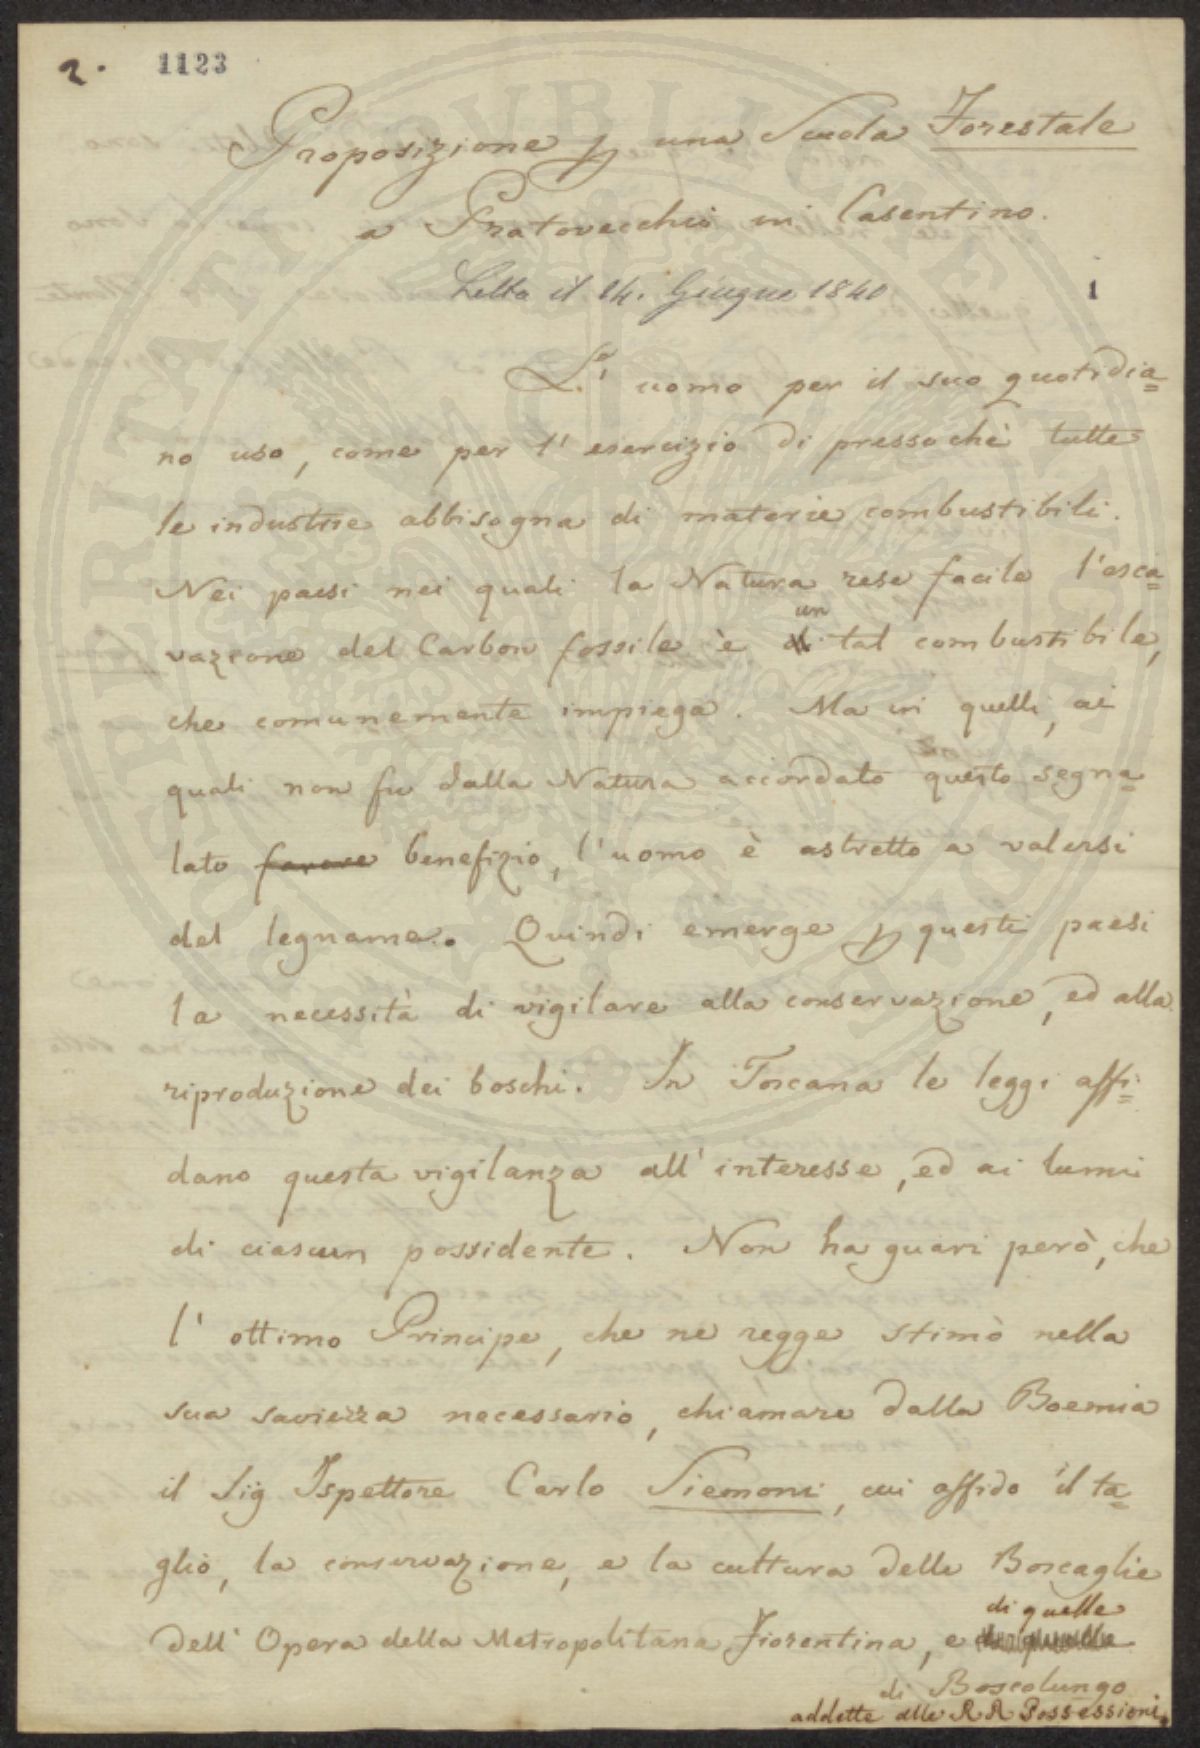 2. 1123
Proposizione p una Scuola Forestale
a Pratovecchio in Casentino.
Letta il 14. Giugno 1840
1
L' uomo per il suo quotidia=
no uso, come per l' esercizio di pressochè tutte
le industrie abbisogna di materie combustibili.
Nei paesi nei quali la Natura rese facile l'esca=
un
vazione del Carbon fossile è di tal combustibile,
che comunemente impiega. Ma in quelli, ai
quali non fu dalla Natura accordato questo segna=
lato favore benefizio, l'uomo è astretto a valersi
del legname. Quindi emerge p questi paesi
la necessità di vigilare alla conservazione, ed alla
riproduzione dei boschi. In Toscana le leggi affi=
dano questa vigilanza all' interesse, ed ai lumi
di ciascun possidente. Non ha guari però, che
l' ottimo Principe, che ne regge stimò nella
sua saviezza necessario, chiamare dalla Boemia
il Sig Ispettore Carlo Siemoni, cui affidò il ta=
glio, la conservazione, e la cultura delle Boscaglie
di quelle
dell' Opera della Metropolitana Fiorentina, e
di Boscolungo
addette alle R R Possessioni.